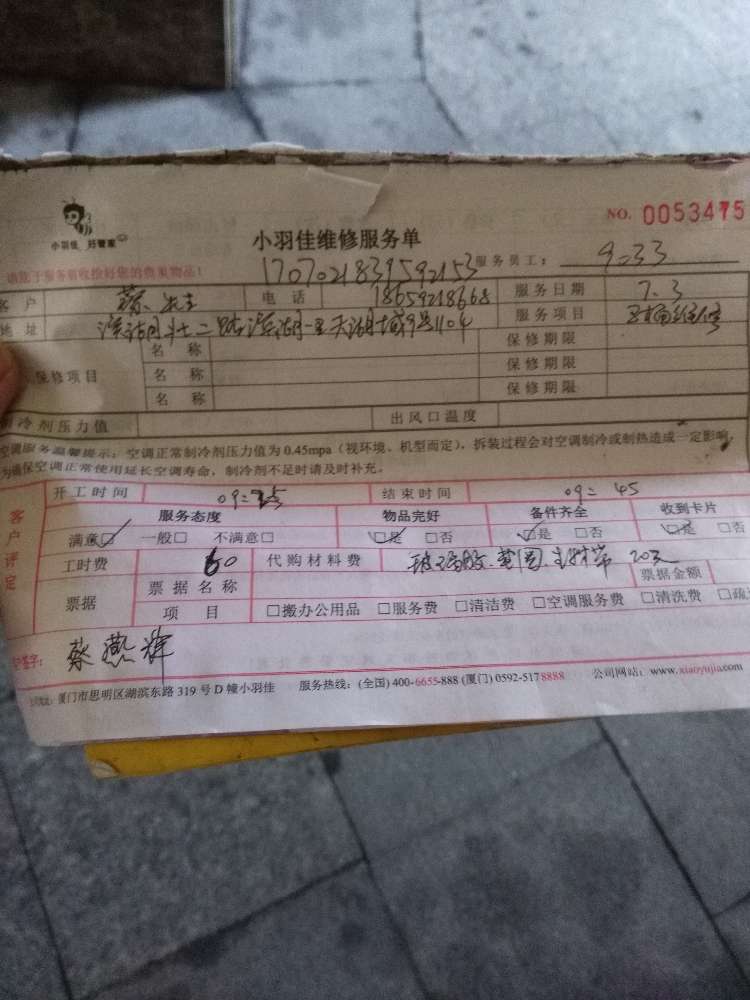 小羽佳 好管家
小羽佳维修服务单
NO. 0053475
请您于服务前收捡好您的贵重物品!
1707021839592153
服务员工: 9033
客户 蔡先生 电话 18659218668 服务日期 7.3
地址 二路 天湖城9号1104 服务项目 维修
保修项目 名称 保修期限
名称 保修期限
名称 保修期限
制冷剂压力值 出风口温度
空调服务温馨提示: 空调正常制冷剂压力值为 0.45mpa(视环境、机型而定),拆装过程会对空调制冷或制热造成一定影响,
为确保空调正常使用延长空调寿命,制冷剂不足时请及时补充。
客户评定
开工时间 结束时间 09:45
服务态度 物品完好 备件齐全 收到卡片
满意☑ 一般□ 不满意□ ☑是 □否 ☑是 □否 ☑是 □否
工时费 60 代购材料费 玻璃胶 生料带 20元
票据 票据名称 票据金额
项目 □搬办公用品 □服务费 □清洁费 □空调服务费 □清洗费 □疏
签字: 蔡燕辉
厦门市思明区湖滨东路 319 号 D 幢小羽佳 服务热线: (全国) 400-6655-888 (厦门) 0592-5178888 公司网站: www.xiaoyujia.com